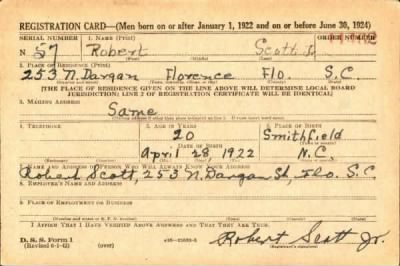 REGISTRATION CARD—(Men born on or after January 1, 1922 and on or before June 30, 1924)
SERIAL NUMBER 1. NAME (Print) ORDER NUMBER
N 57 Robert Scott Jr
2. PLACE OF RESIDENCE (Print)
253 N. Dargan Florence Flo. S.C.
[THE PLACE OF RESIDENCE GIVEN ON THE LINE ABOVE WILL DETERMINE LOCAL BOARD
JURISDICTION; LINE 2 OF REGISTRATION CERTIFICATE WILL BE IDENTICAL]
3. MAILING ADDRESS
Same
4. TELEPHONE 5. AGE IN YEARS 6. PLACE OF BIRTH
20 Smithfield
DATE OF BIRTH
April 28, 1922 N.C.
7. NAME AND ADDRESS OF PERSON WHO WILL ALWAYS KNOW YOUR ADDRESS
Robert Scott, 253 N. Dargan St, Flo. S.C.
8. EMPLOYER'S NAME AND ADDRESS
9. PLACE OF EMPLOYMENT OR BUSINESS
I AFFIRM THAT I HAVE VERIFIED ABOVE ANSWERS AND THAT THEY ARE TRUE.
D. S. S. Form 1
(Revised 6-1-42) Robert Scott Jr.